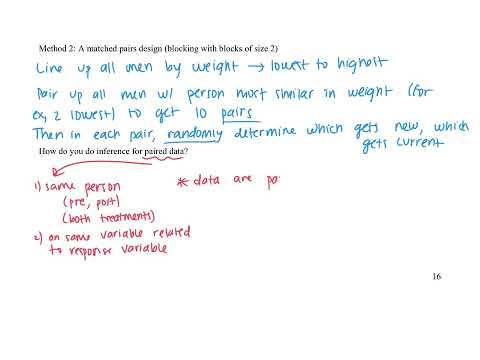 Method 2: A matched pairs design (blocking with blocks of size 2)
Line up all men by weight → lowest to highest
Pair up all men w/ person most similar in weight (for
ex, 2 lowest) to get 10 pairs
Then in each pair, randomly determine which gets new, which
gets current
How do you do inference for paired data?
1) same person
(pre, post)
(both treatments)
2) on same variable related
to response variable
* data are pa
16